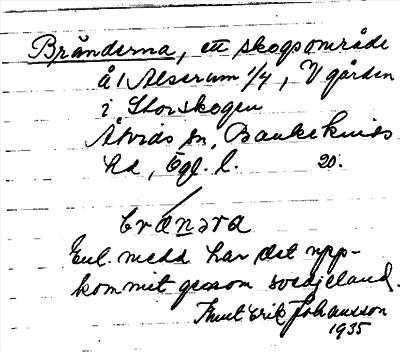 Brånderna, ett skogsområde
å 1 Alserum 1/4, V gården
i Storskogen
Åtvids sn, Bankekinds
hd, Egl. l. 20.
brånəra
Enl. medd har det upp-
kommit genom svedjeland.
Knut Erik Johansson
1935